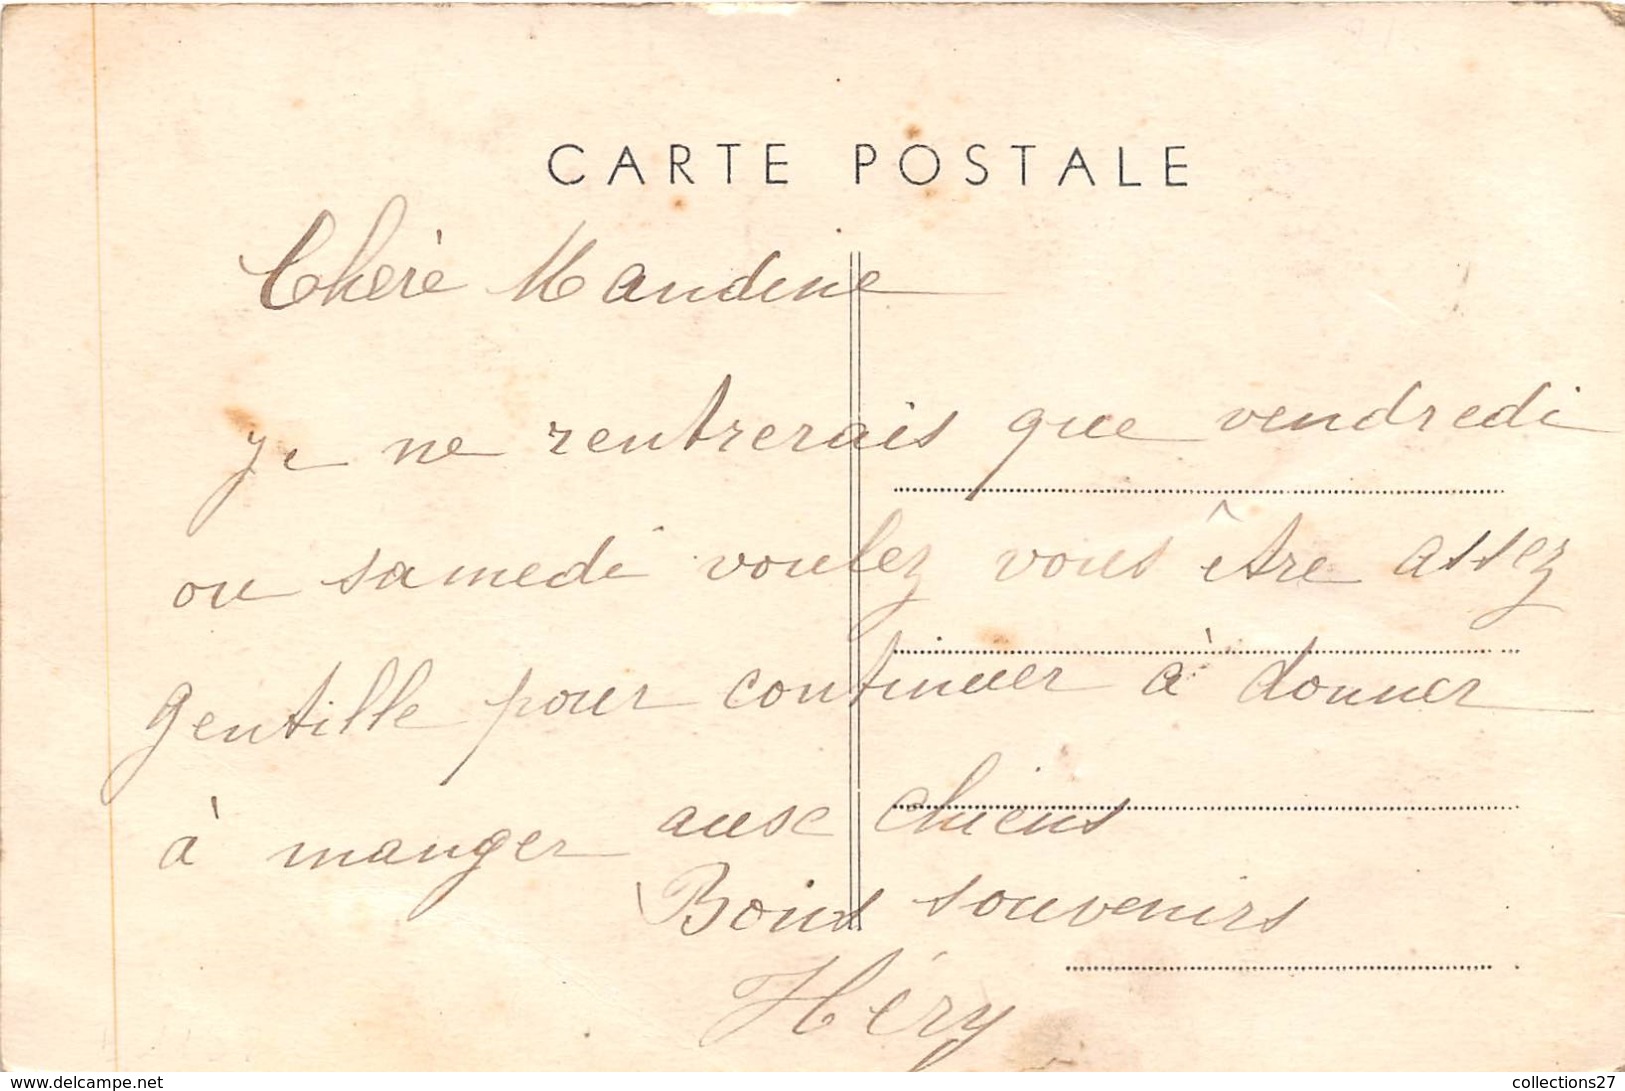 CARTE POSTALE
Chère Mandine
Je ne rentrerais que vendredi
ou samedi voulez vous être assez
gentille pour continuer à donner
à manger aux chiens
Bons souvenirs
Héry
www.delcampe.net
collections27